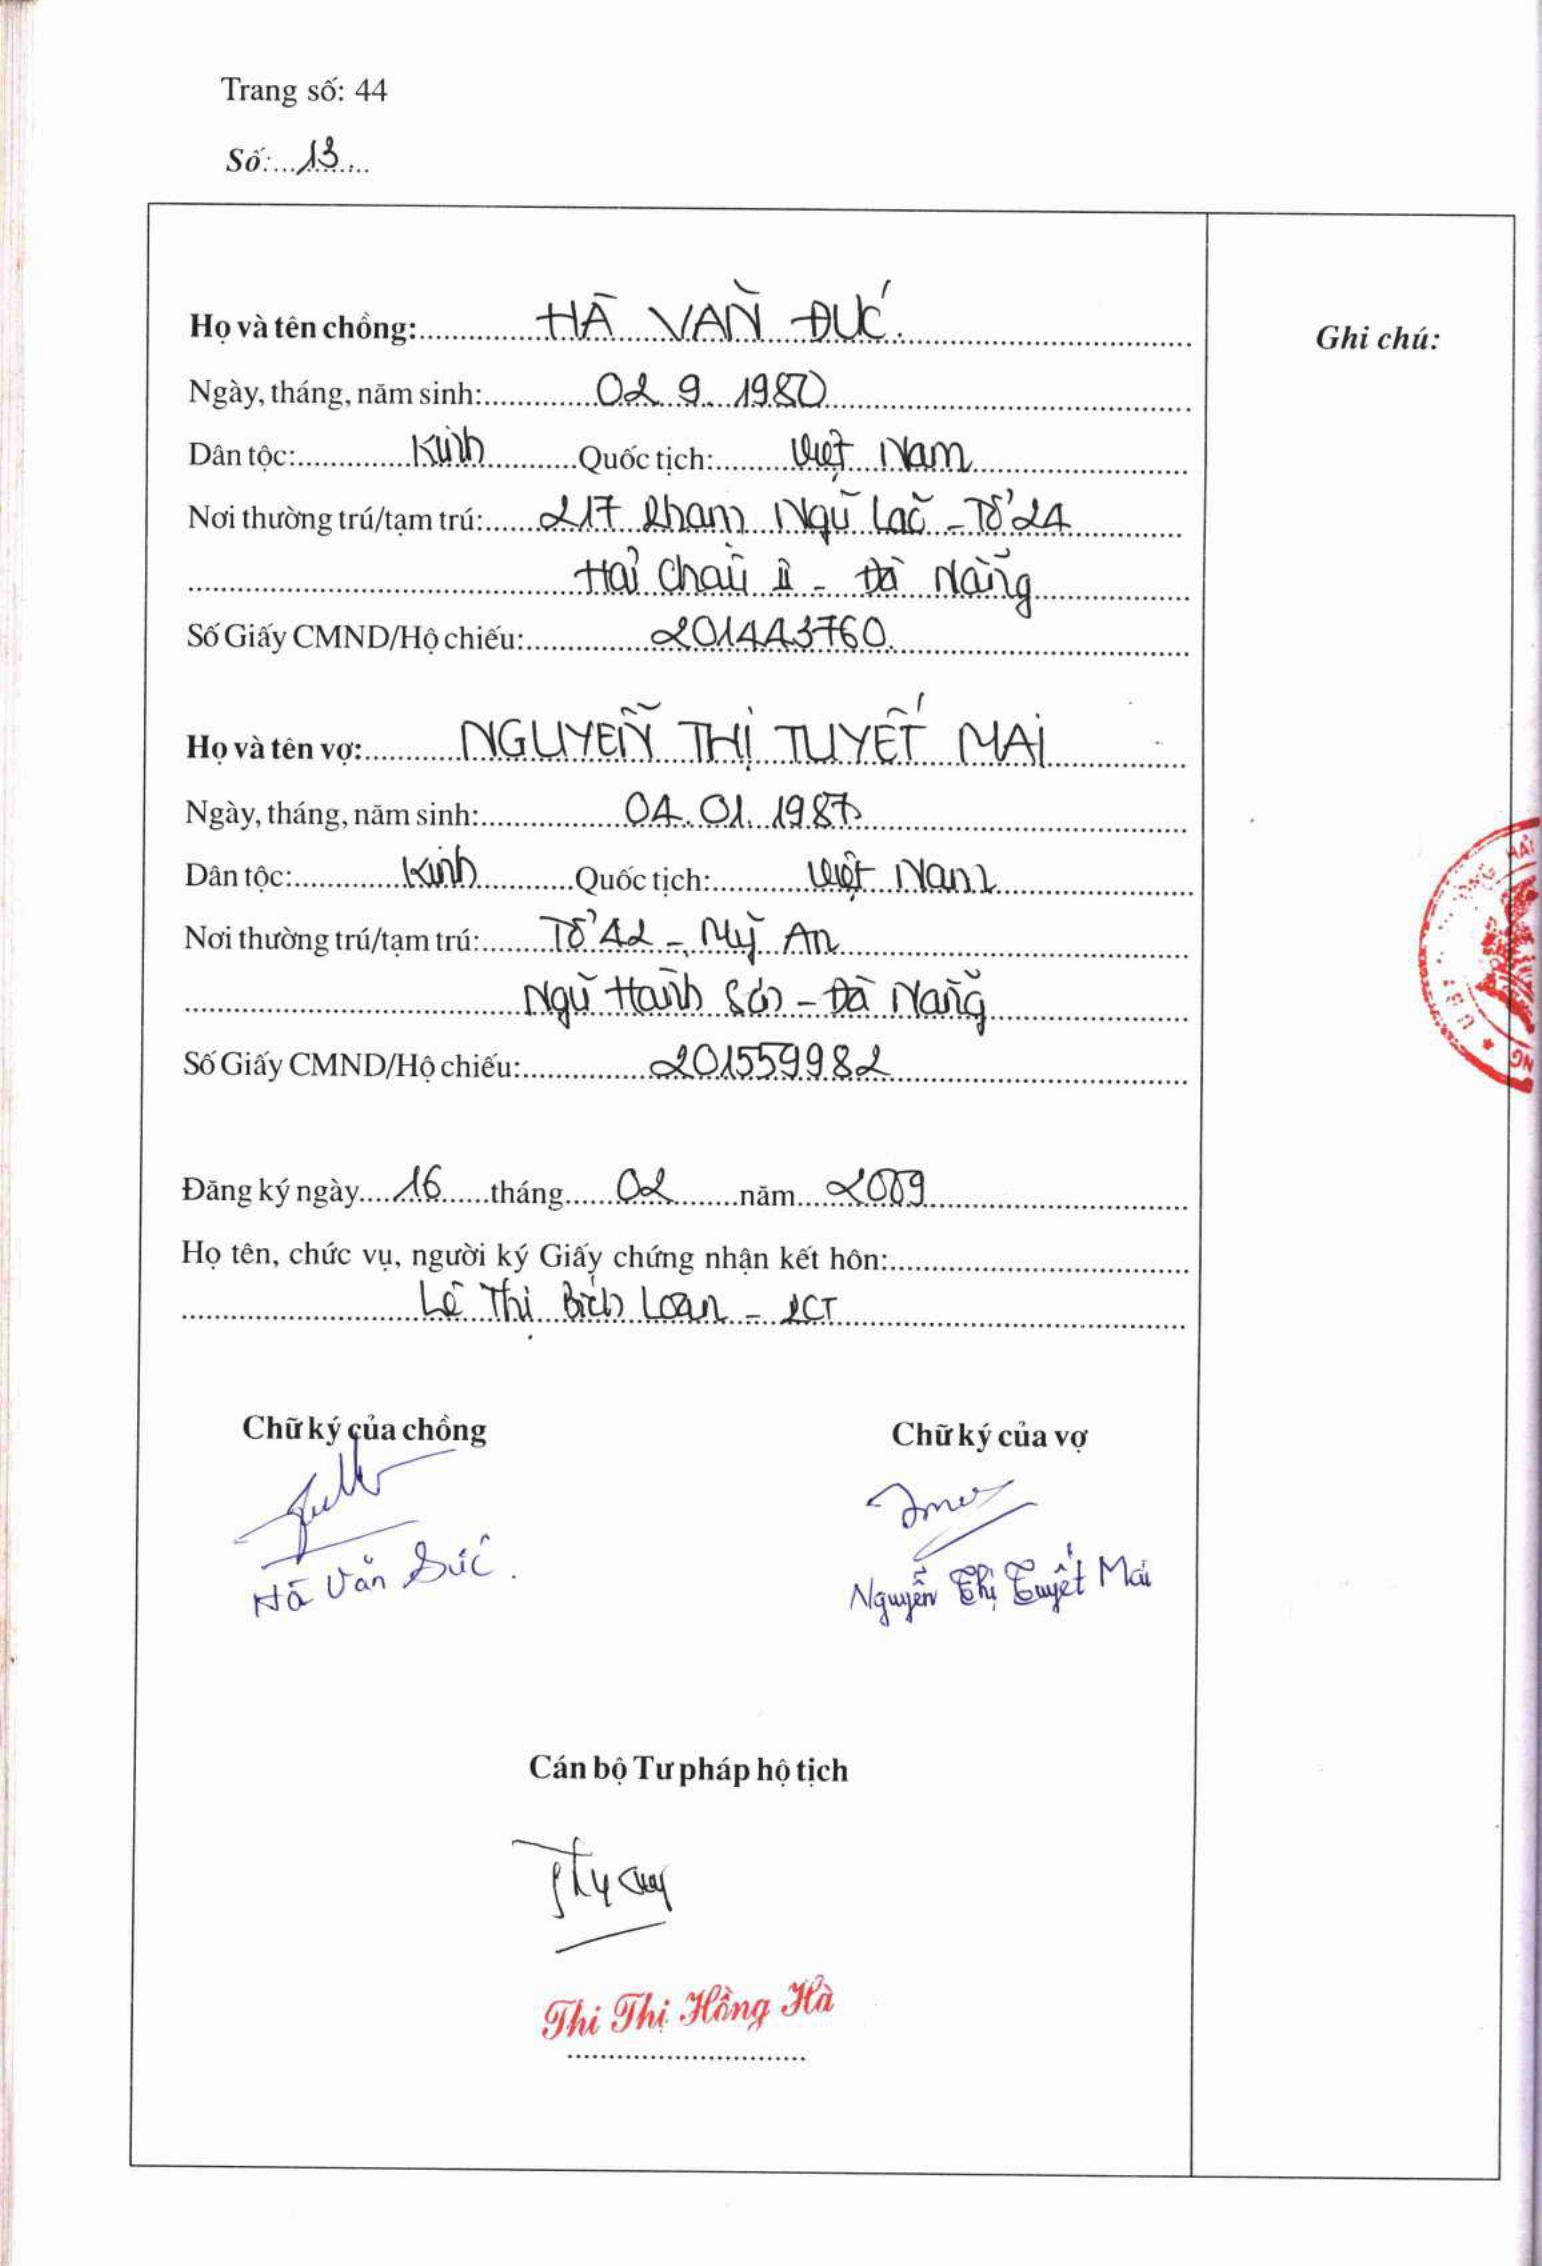 Trang số: 44
Số: 13
Họ và tên chồng: HÀ VĂN ĐỨC.
Ghi chú:
Ngày, tháng, năm sinh: 02.9.1980
Dân tộc: Kinh Quốc tịch: Việt Nam
Nơi thường trú/tạm trú: 217 Phạm Ngũ Lão - Tổ 24
Hải Châu II - Đà Nẵng
Số Giấy CMND/Hộ chiếu: 201443760.
Họ và tên vợ: NGUYỄN THỊ TUYẾT MAI
Ngày, tháng, năm sinh: 04.01.1987
Dân tộc: Kinh Quốc tịch: Việt Nam
Nơi thường trú/tạm trú: Tổ 42 - Mỹ An
Ngũ Hành Sơn - Đà Nẵng
Số Giấy CMND/Hộ chiếu: 201559982
Đăng ký ngày 16 tháng 02 năm 2009
Họ tên, chức vụ, người ký Giấy chứng nhận kết hôn:
Lê Thị Bích Loan - PCT
Chữ ký của chồng Chữ ký của vợ
Hà Văn Đức. Nguyễn Thị Tuyết Mai
Cán bộ Tư pháp hộ tịch
Thi Thị Hồng Hà